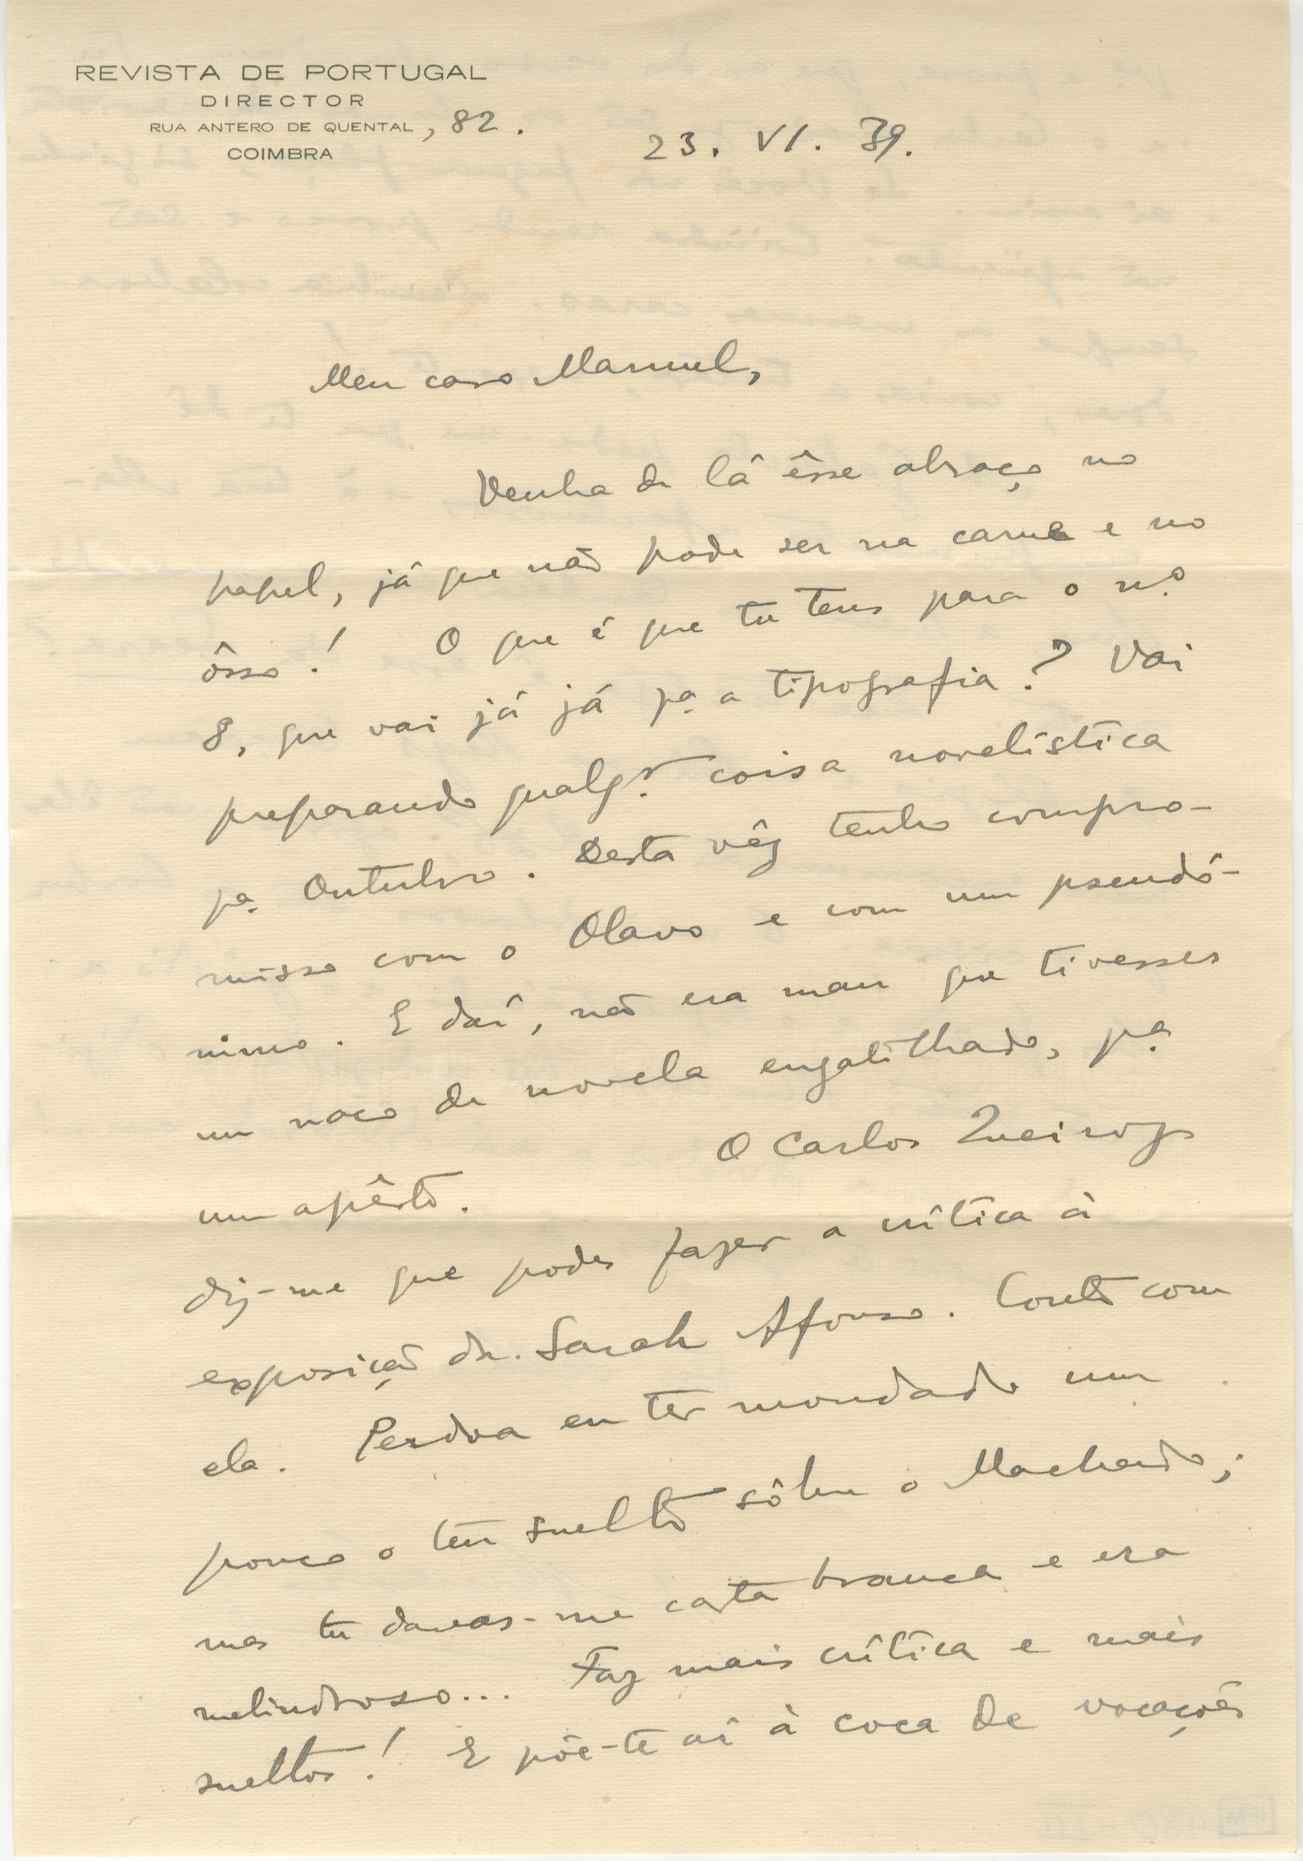 REVISTA DE PORTUGAL
DIRECTOR
RUA ANTERO DE QUENTAL, 82.
COIMBRA
23. VI. 39.
Meu caro Manuel,
Venha de lá êsse abraço no
papel, já que não pode ser na carne e no
ôsso! O que é que tu tens para o n.º
8, que vai já já pª a tipografia? Vai
preparando qualqr. coisa novelística
pª Outubro. Desta vêz tenho compro-
misso com o Olavo e com um pseudó-
nimo. E daí, não era mau que tivesses
um naco de novela engatilhado, pª
um apêrto. O Carlos Queiroz
diz-me que podes fazer a crítica à
exposição da Sarah Afonso. Conto com
ela. Perdoa eu ter mondado um
pouco o teu suelto sôbre o Machado;
mas tu davas-me carta branca e era
melindroso... Faz mais crítica e mais
sueltos! E põe-te aí à coca de vocações